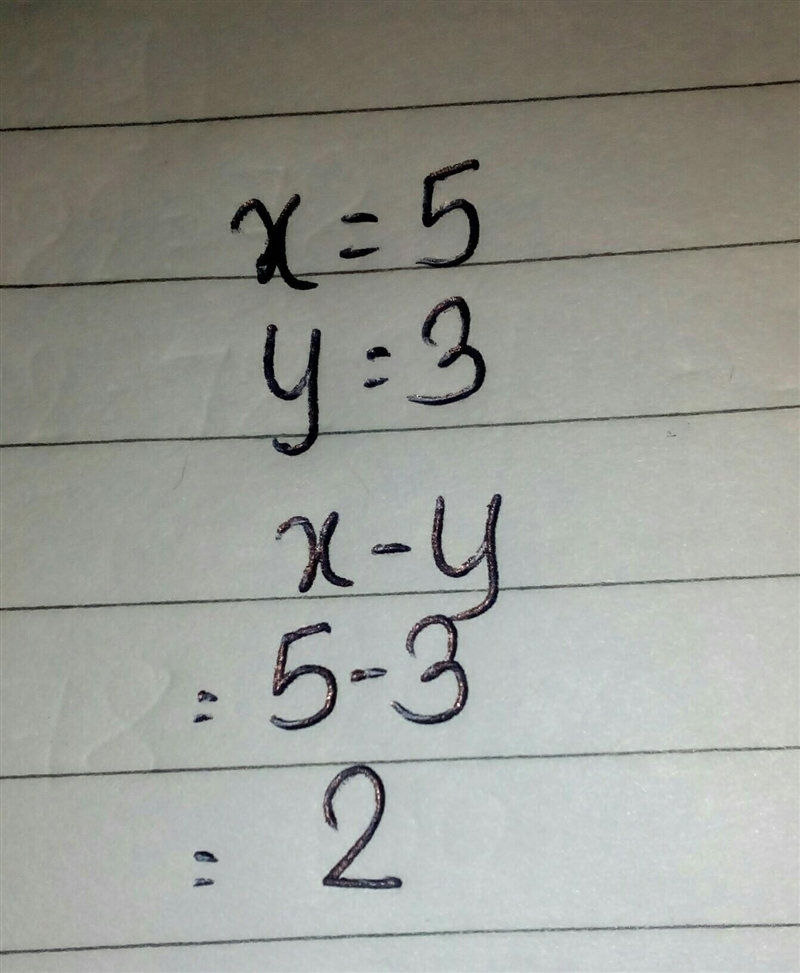 x = 5
y = 3
x - y
= 5 - 3
= 2